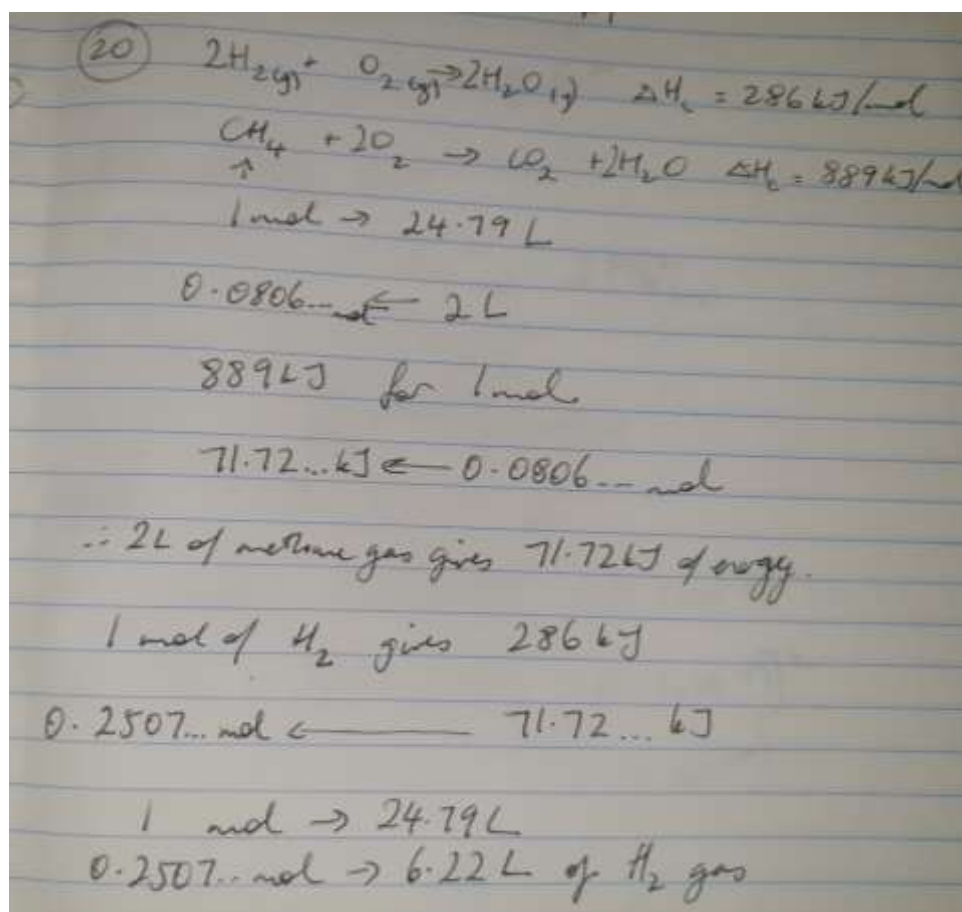 20 2H2(g) + O2(g) → 2H2O(g) ΔHc = 286 kJ/mol
CH4 + 2O2 → CO2 + 2H2O ΔHc = 889 kJ/mol
↑
1 mol → 24.79 L
0.0806... mol ← 2 L
889 kJ for 1 mol
71.72... kJ ← 0.0806... mol
∴ 2L of methane gas gives 71.72 kJ of energy.
1 mol of H2 gives 286 kJ
0.2507... mol ← 71.72... kJ
1 mol → 24.79 L
0.2507.. mol → 6.22 L of H2 gas